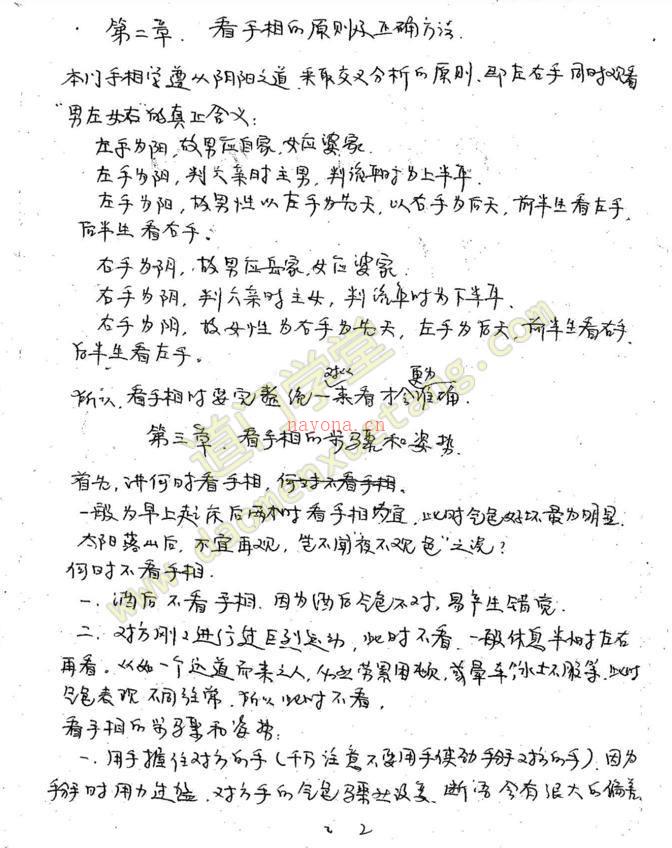 第二章. 看手相的原则及正确方法.
本门手相学遵从阴阳之道.采取交叉分析的原则.即左右手同时观看
"男左女右"的真正含义:
左手为阳,故男应自家,女应婆家.
左手为阳,判六亲时主男,判流年时为上半年.
左手为阳,故男性以左手为先天,以右手为后天,前半生看左手,
后半生看右手。
右手为阴,故男应岳家,女应婆家.
右手为阴,判六亲时主女,判流年时为下半年.
右手为阴,故女性为右手为先天,左手为后天,前半生看右手
后半生看左手。
对从 更为
所以,看手相时要完整统一来看才会准确.
nayona.cn
第三章.看手相的步骤和姿势.
首先,讲何时看手相,何时不看手相.
一般为早上起床后两小时看手相为宜,此时气色好坏最为明显.
太阳落山后,不宜再观,岂不闻"夜不观色"之说?
何时不看手相.
一.酒后不看手相.因为酒后气色不对,易产生错觉.
二.对方刚刚进行过巨烈运动,此时不看.一般休息半小时左右
再看。从如一个远道而来之人,劳累困顿,或晕车,水土不服等.此时
气色表现不同往常.所以此时不看。
看手相的步骤和姿势:
一.用手握住对方的手(千万注意不要用手使劲掰对方的手).因为
掰手时用力过猛.对方手的气色骤然改变.断语会有很大的偏差
2 2
道门学堂
www.daomenxuetang.com